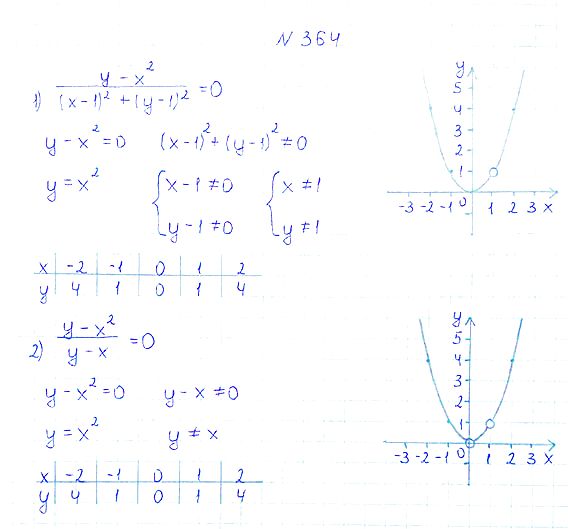 N 364
1) (y - x²)/((x-1)² + (y-1)²) = 0
y - x² = 0 (x-1)² + (y-1)² ≠ 0
y = x² { x - 1 ≠ 0 { x ≠ 1
y - 1 ≠ 0 y ≠ 1
x | -2 | -1 | 0 | 1 | 2
y | 4 | 1 | 0 | 1 | 4
y
5
4
3
2
1
-3 -2 -1 0 1 2 3 x
2) (y - x²)/(y - x) = 0
y - x² = 0 y - x ≠ 0
y = x² y ≠ x
x | -2 | -1 | 0 | 1 | 2
y | 4 | 1 | 0 | 1 | 4
y
5
4
3
2
1
-3 -2 -1 0 1 2 3 x